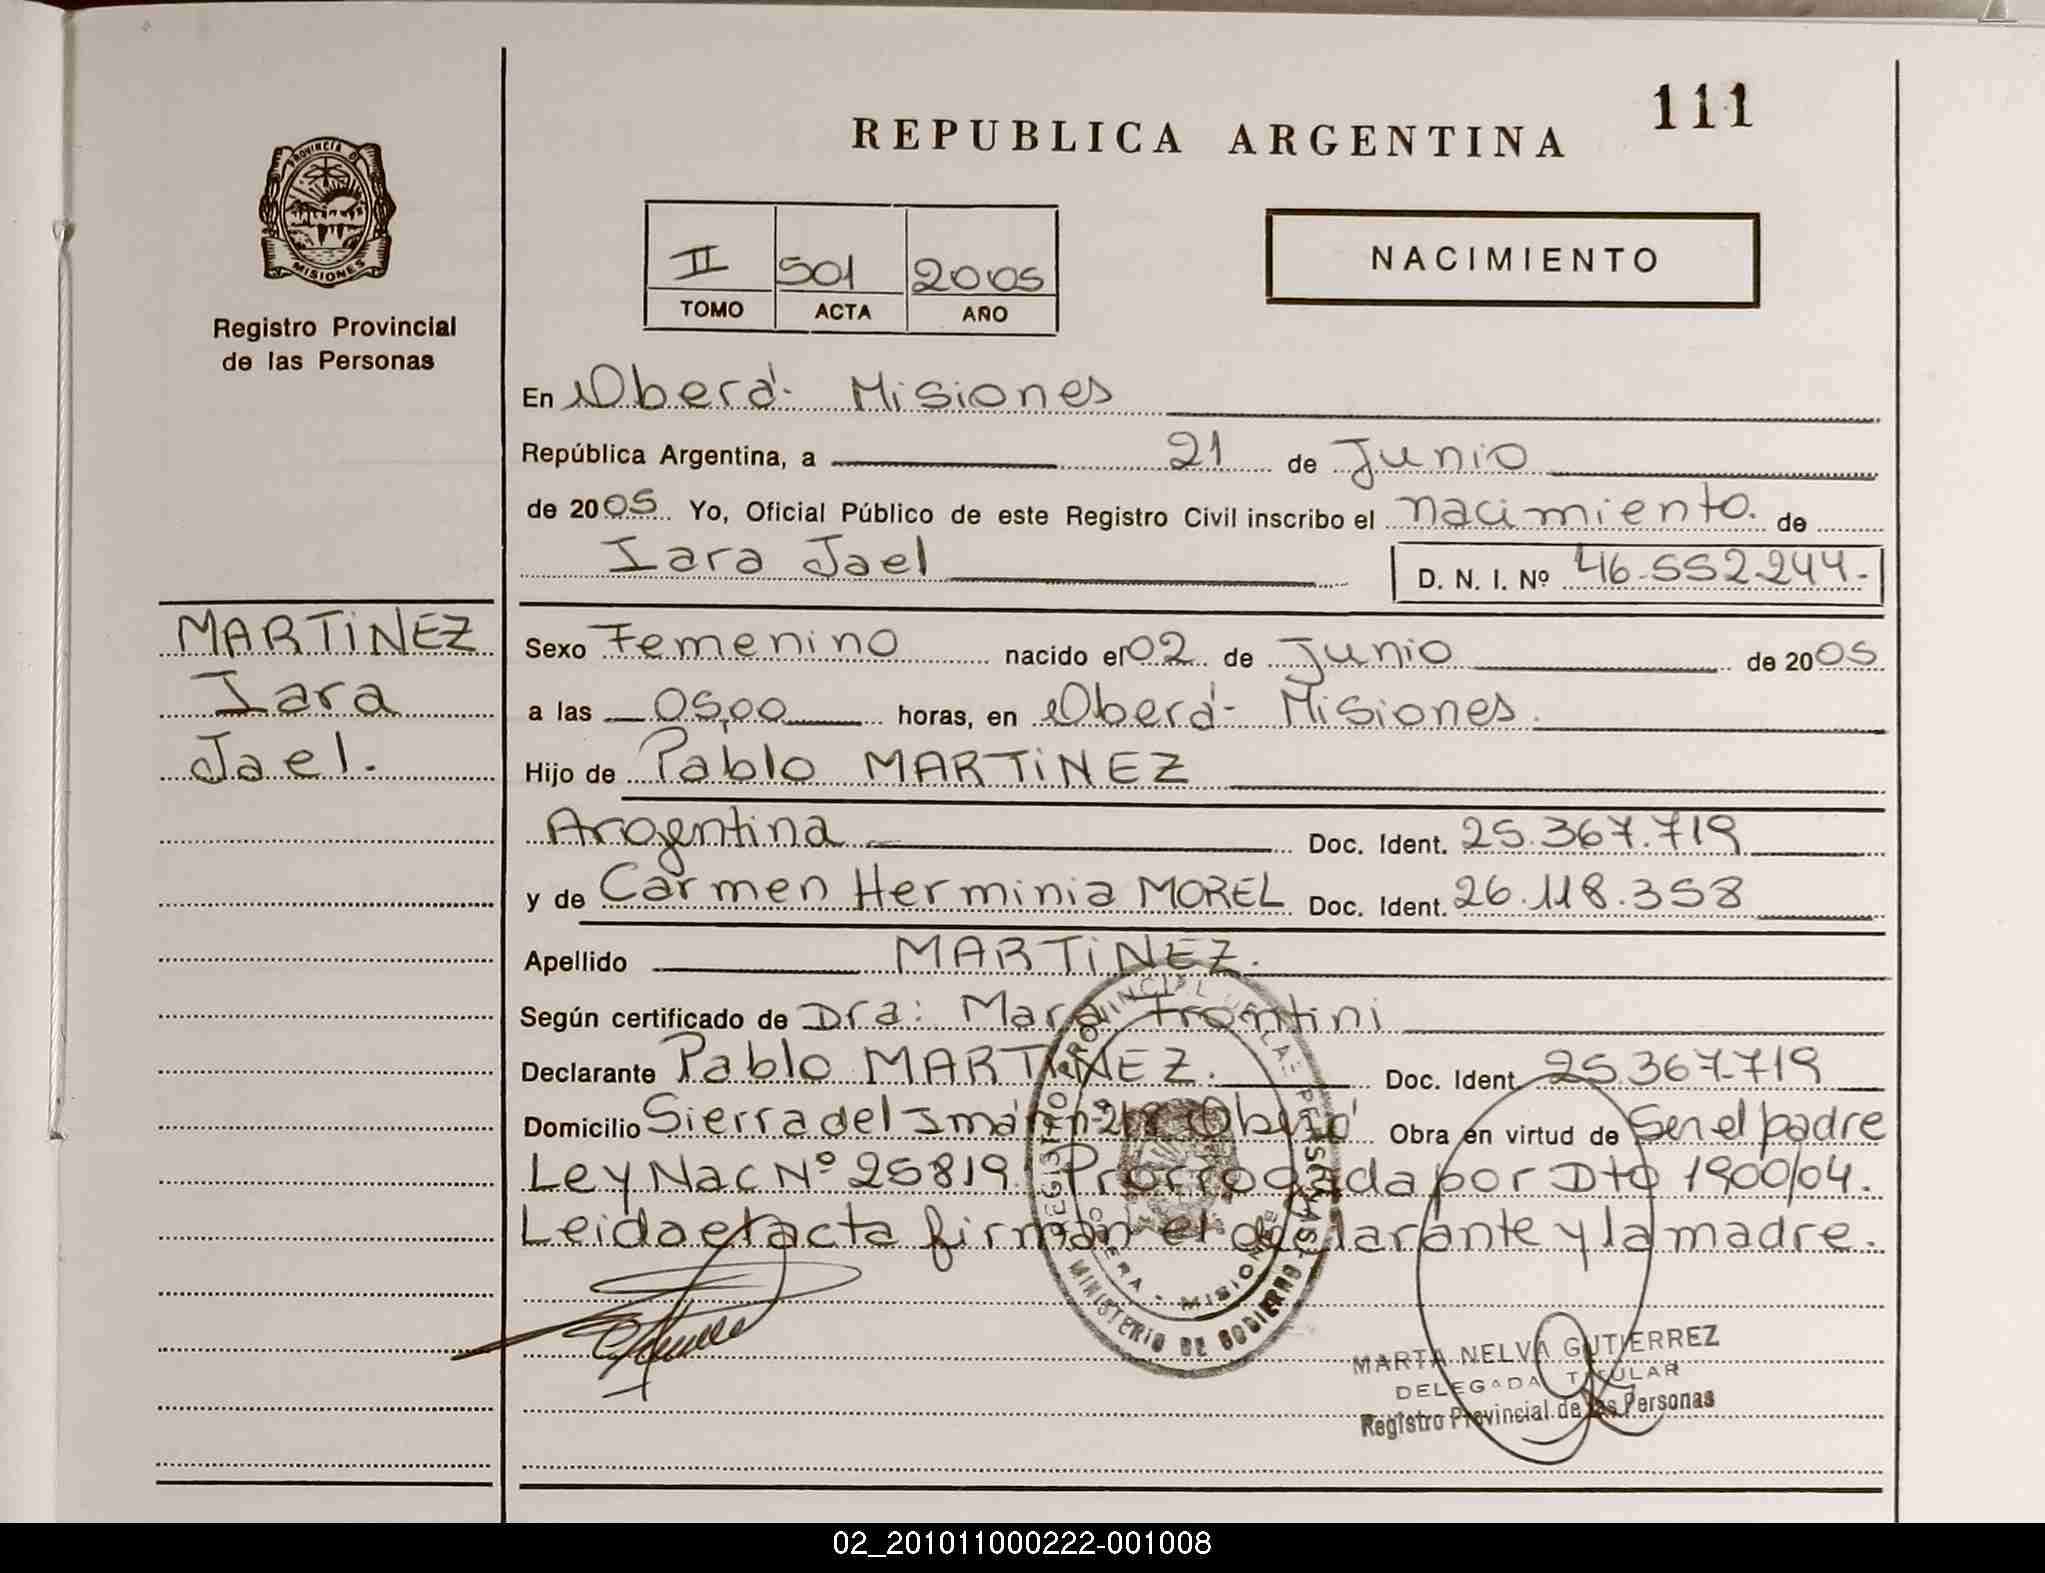 111
REPUBLICA ARGENTINA
PROVINCIA D
MISIONES
Registro Provincial
de las Personas
II 501 2005
TOMO ACTA AÑO
NACIMIENTO
En Oberá- Misiones
República Argentina, a 21 de Junio
de 2005 Yo, Oficial Público de este Registro Civil inscribo el nacimiento. de
Iara Jael D. N. I. Nº 46.552.244.-
MARTINEZ
Iara
Jael.
Sexo Femenino nacido el 02 de Junio de 2005
a las 05,00 horas, en Oberá- Misiones.
Hijo de Pablo MARTINEZ
Argentina Doc. Ident. 25.367.719
y de Carmen Herminia MOREL Doc. Ident. 26.118.358
Apellido MARTINEZ.
Según certificado de Dra: Mara Trontini
Declarante Pablo MARTINEZ. Doc. Ident. 25.367.719
Domicilio Sierra del Imán Oberá Obra en virtud de Ser el padre
Ley Nac Nº 25819. Prorrogada por Dto 1900/04.
Leida el acta firman el declarante y la madre.
REGISTRO PROVINCIAL DE LAS PERSONAS
MINISTERIO DE GOBIERNO
MISIONES
MARTA NELVA GUTIERREZ
DELEGADA TITULAR
Registro Provincial de las Personas
02_201011000222-001008